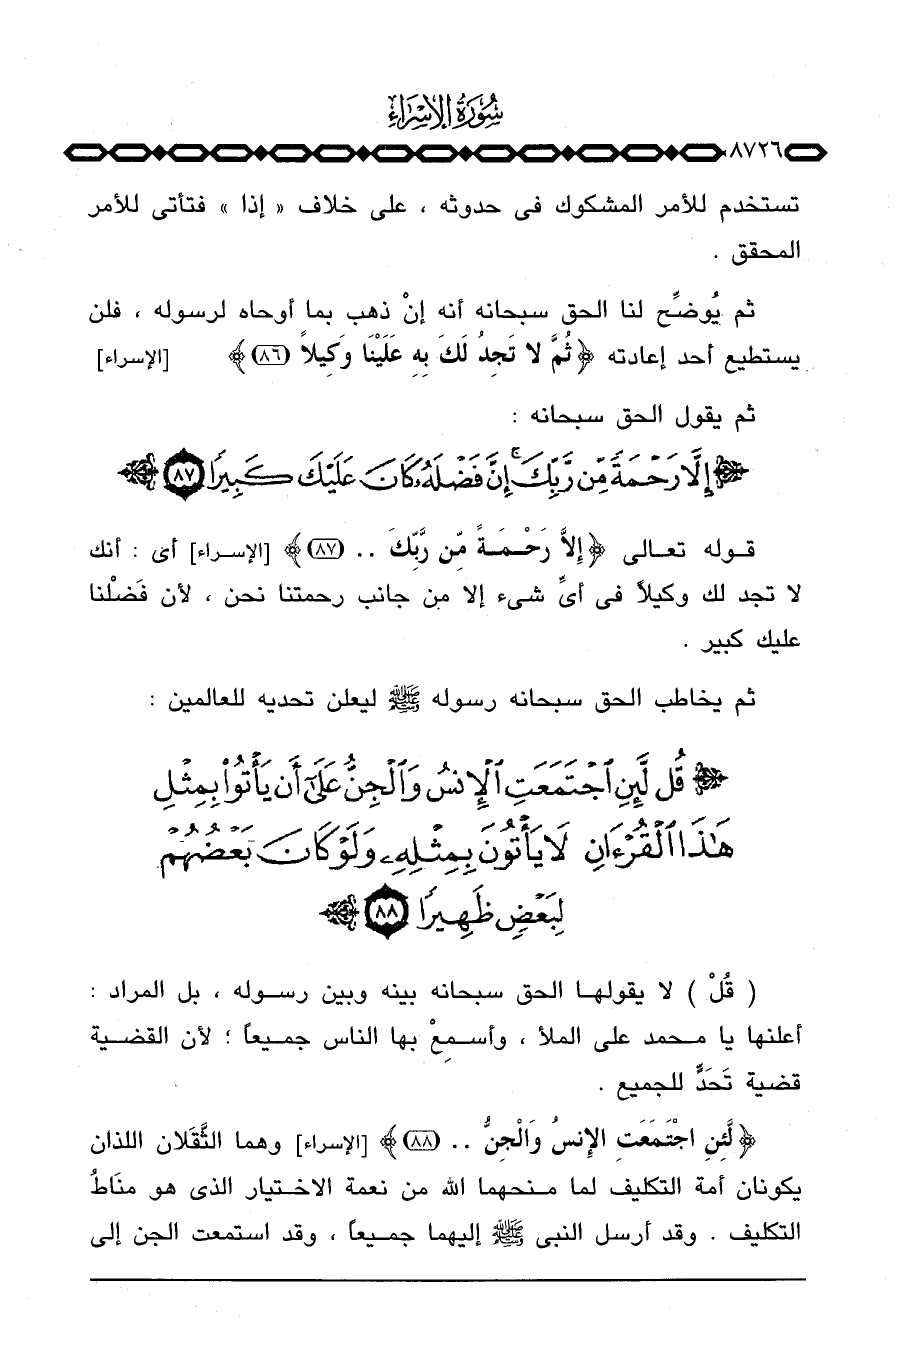 سُورَةُ الإِسْرَاءِ
٨٧٢٦
تستخدم للأمر المشكوك فى حدوثه ، على خلاف « إذا » فتأتى للأمر
المحقق .
ثم يُوضِّح لنا الحق سبحانه أنه إنْ ذهب بما أوحاه لرسوله ، فلن
يستطيع أحد إعادته ﴿ ثُمَّ لا تَجِدُ لَكَ بِهِ عَلَيْنَا وَكِيلاً (٨٦) ﴾ [الإسراء]
ثم يقول الحق سبحانه :
إِلَّا رَحْمَةً مِّن رَّبِّكَ ۚ إِنَّ فَضْلَهُۥ كَانَ عَلَيْكَ كَبِيرًا ٨٧
قوله تعالى ﴿ إِلاَّ رَحْمَةً مِّن رَّبِّكَ .. (٨٧) ﴾ [الإسراء] أى : أنك
لا تجد لك وكيلاً فى أىِّ شىء إلا من جانب رحمتنا نحن ، لأن فَضْلنا
عليك كبير .
ثم يخاطب الحق سبحانه رسوله ﷺ ليعلن تحديه للعالمين :
قُل لَّئِنِ ٱجْتَمَعَتِ ٱلْإِنسُ وَٱلْجِنُّ عَلَىٰٓ أَن يَأْتُوا۟ بِمِثْلِ
هَٰذَا ٱلْقُرْءَانِ لَا يَأْتُونَ بِمِثْلِهِۦ وَلَوْ كَانَ بَعْضُهُمْ
لِبَعْضٍ ظَهِيرًا ٨٨
( قُلْ ) لا يقولها الحق سبحانه بينه وبين رسوله ، بل المراد :
أعلنها يا محمد على الملأ ، وأسمِعْ بها الناس جميعاً ؛ لأن القضية
قضية تَحَدٍّ للجميع .
﴿ لَّئِنِ اجْتَمَعَتِ الإِنسُ وَالْجِنُّ .. (٨٨) ﴾ [الإسراء] وهما الثَّقَلان اللذان
يكونان أمة التكليف لما منحهما الله من نعمة الاختيار الذى هو مَنَاطُ
التكليف . وقد أرسل النبى ﷺ إليهما جميعاً ، وقد استمعت الجن إلى